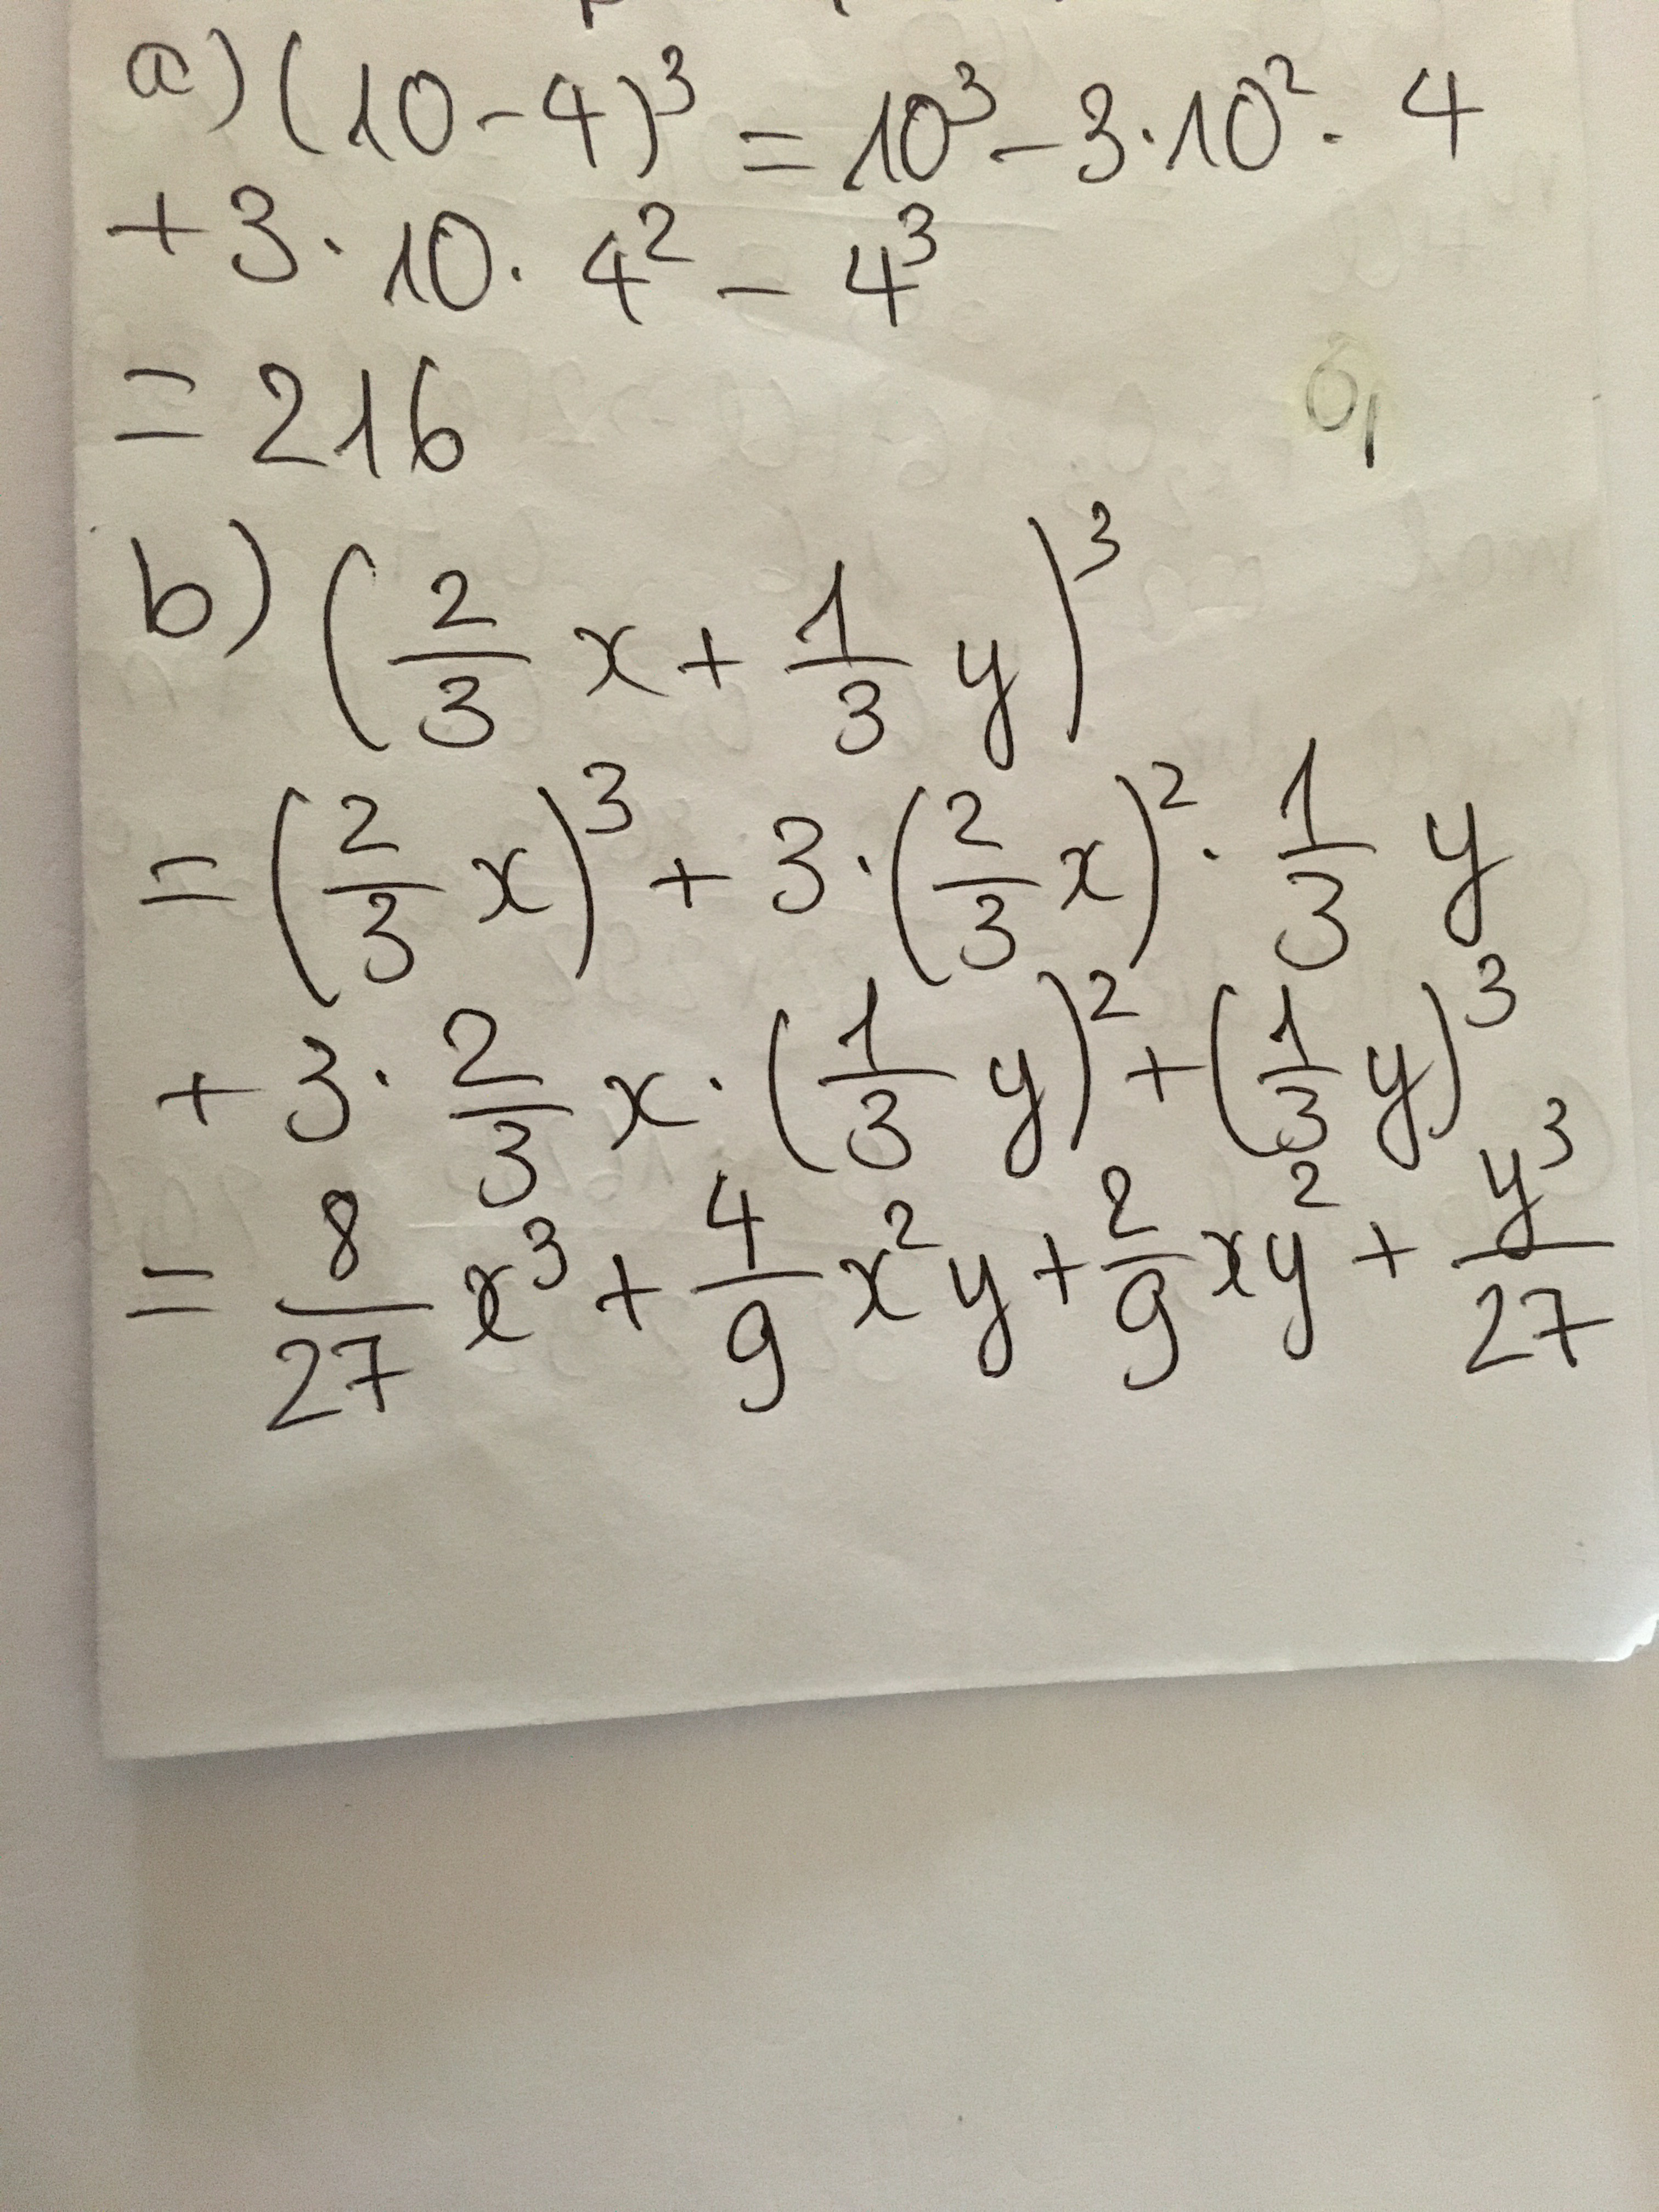 a) (10-4)³ = 10³ - 3·10²·4
+ 3·10·4² - 4³
= 216
b) (2/3 x + 1/3 y)³
= (2/3 x)³ + 3·(2/3 x)²·1/3 y
+ 3·2/3 x·(1/3 y)² + (1/3 y)³
= 8/27 x³ + 4/9 x²y + 2/9 xy² + y³/27